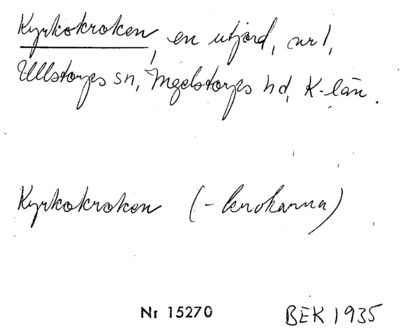 Kyrkokroken, en utjord, nr 1,
Ullstorps sn, Ingelstorps hd, K-län.
Kyrkokroken (-krokarna)
Nr 15270 BEK 1935